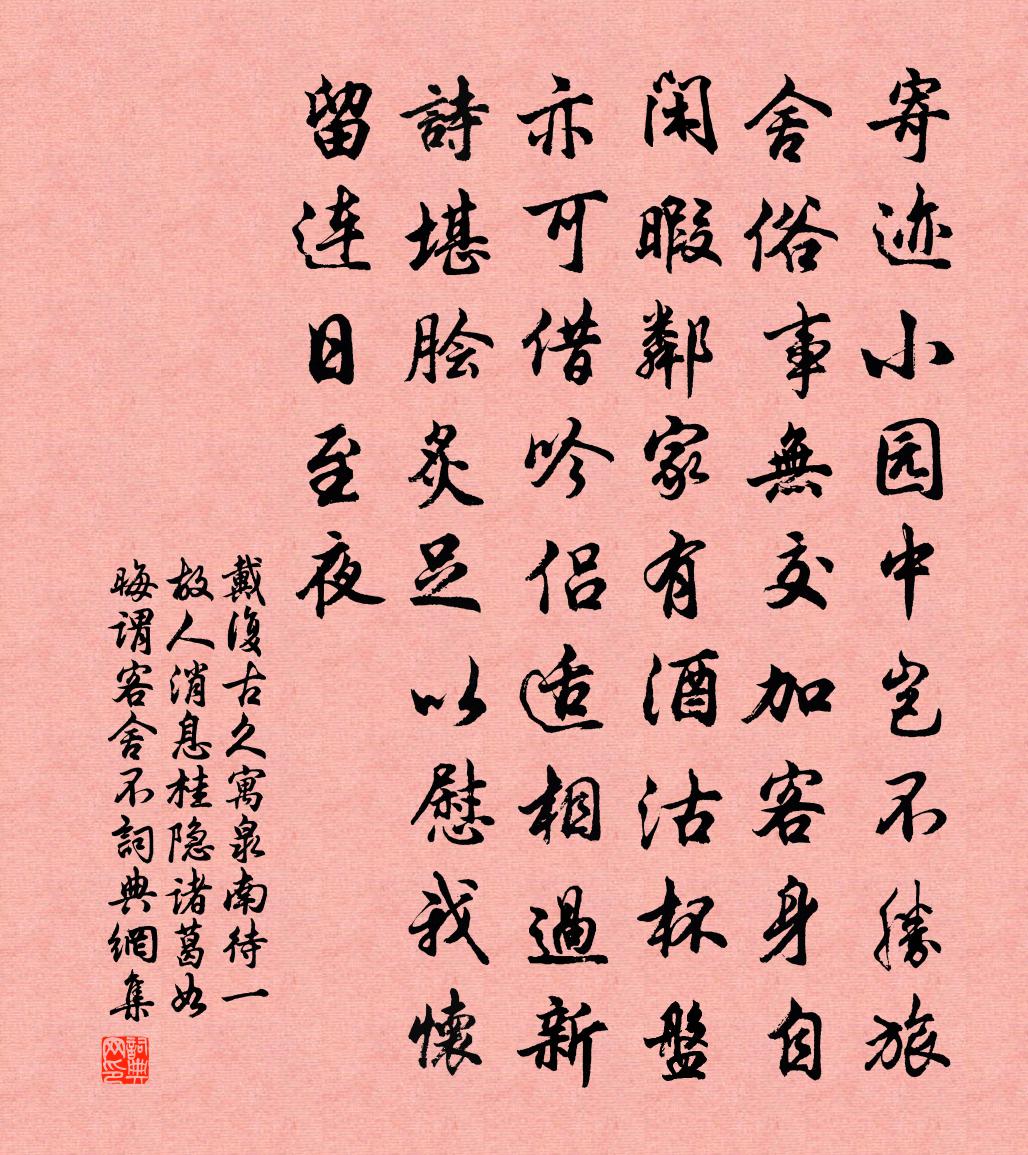 寄迹小园中岂不勝旅
舍俗事無交加客身自
闲暇鄰家有酒沽杯盤
亦可借吟侣适相過新
詩堪脍炙足以慰我懷
留连日至夜
戴復古久寓泉南待一
故人消息桂隐诸葛如
晦谓客舍不詞典網集
詞典网印